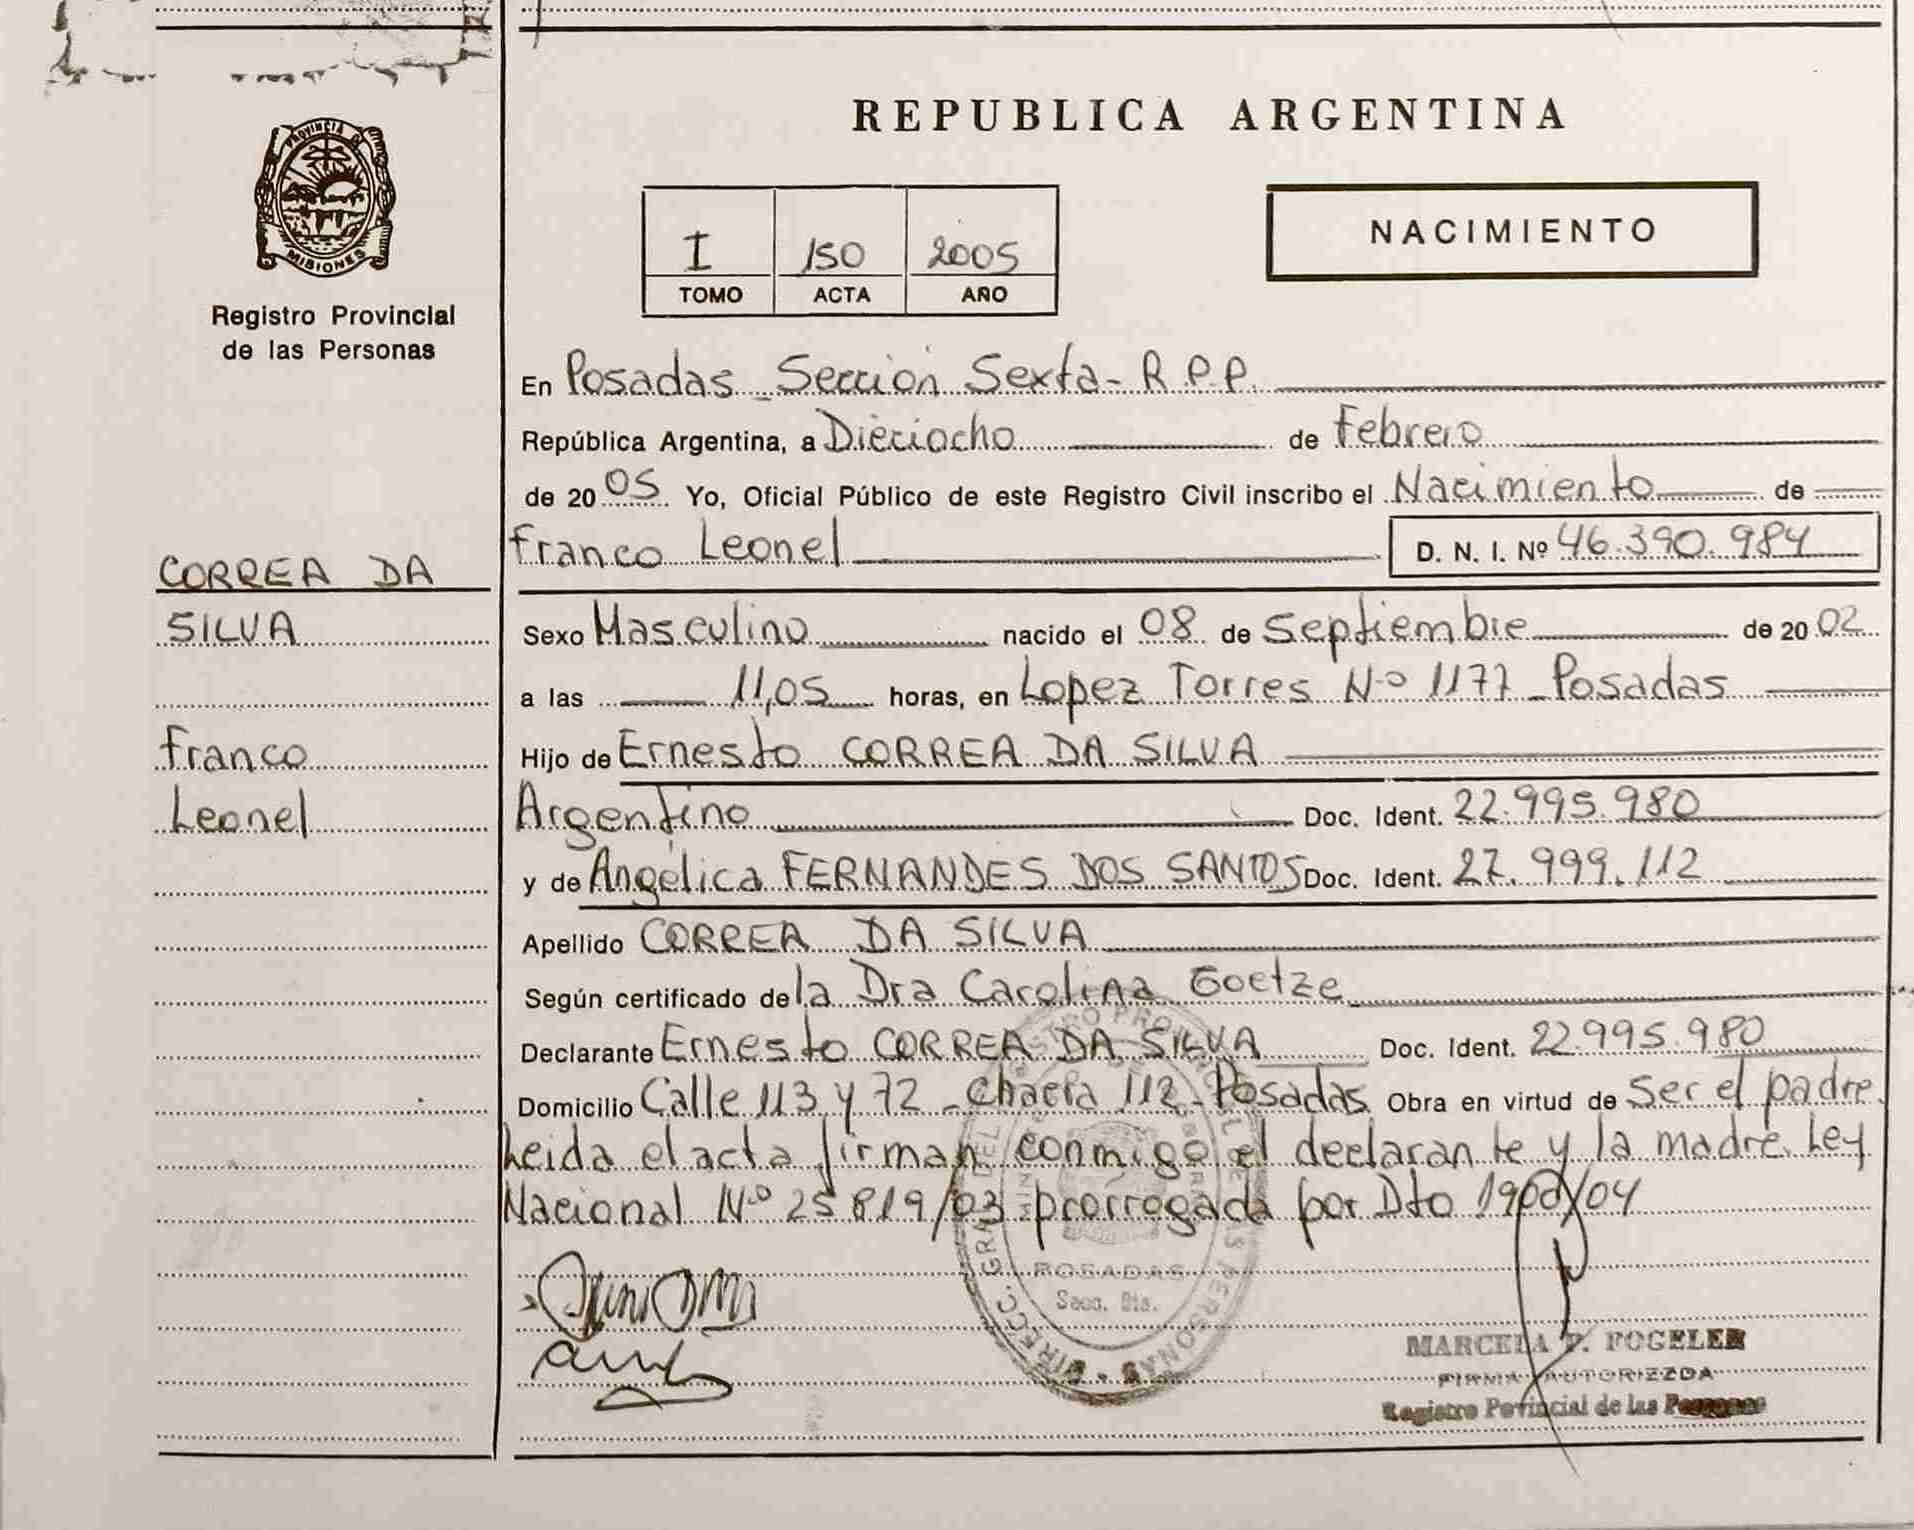 REPUBLICA ARGENTINA
PROVINCIA D
MISIONES
Registro Provincial
de las Personas
I 150 2005
TOMO ACTA AÑO
NACIMIENTO
En Posadas Sección Sexta - R.P.P.
República Argentina, a Dieciocho de Febrero
de 2005 Yo, Oficial Público de este Registro Civil inscribo el Nacimiento de
Franco Leonel D. N. I. Nº 46.390.984
CORREA DA
SILVA
Franco
Leonel
Sexo Masculino nacido el 08 de Septiembre de 2002
a las 11,05 horas, en Lopez Torres Nº 1177 - Posadas
Hijo de Ernesto CORREA DA SILVA
Argentino Doc. Ident. 22.995.980
y de Angélica FERNANDES DOS SANTOS Doc. Ident. 27.999.112
Apellido CORREA DA SILVA
Según certificado de la Dra Carolina Goetze
Declarante Ernesto CORREA DA SILVA Doc. Ident. 22.995.980
Domicilio Calle 113 y 72 - Chacra 112 - Posadas Obra en virtud de Ser el padre.
Leida el acta firman conmigo el declarante y la madre. Ley
Nacional Nº 25819/03 prorrogada por Dto 1900/04
POSADAS
Secc. 6ta.
MARCELA F. FOGELER
FIRMA AUTORIZZDA
Registro Povincial de las Personas